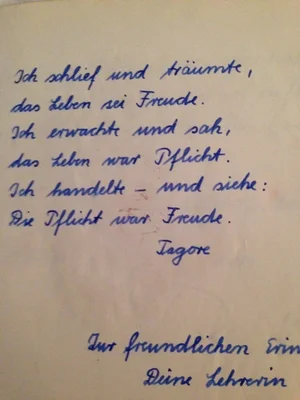 Ich schlief und träumte,
das Leben sei Freude.
Ich erwachte und sah,
das Leben war Pflicht.
Ich handelte – und siehe:
Die Pflicht war Freude.
Tagore
Zur freundlichen
Deine Lehrerin